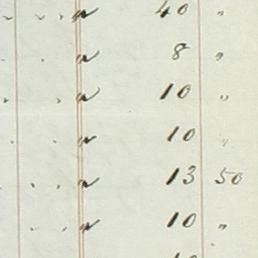 " 40 "
" 8 "
" 10 "
" 10 "
" 13 50
" 10 "